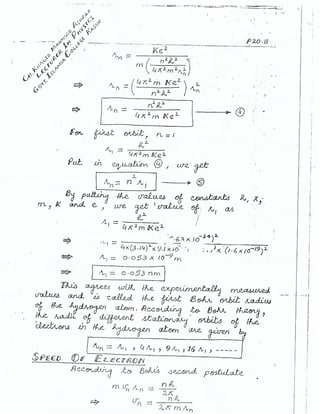 P20.8
CH. KHALID MAHMOOD
LECTURER IN PHYSICS
GOVT. ISLAMIA COLLEGE KASUR
r_n = Ke² / m ( n²h² / 4π²m²r_n² )
⇒ r_n = ( 4π²m Ke² / n²h² ) r_n²
⇒ r_n = n²h² / 4π²m Ke² → ④
For first orbit, n = 1
r₁ = h² / 4π²m Ke²
Put in equation ④, we get
r_n = n² r₁ → ⑤
By putting the values of constants h, π,
m, K and e, we get value of r₁ as
r₁ = h² / 4π²m Ke²
4×(3.14)²×9.1×10 (1.6×10⁻¹⁹)²
⇒ r₁ = 0.053 × 10⁻⁹ m
⇒ r₁ = 0.053 nm
This agrees with the experimentally measured
values and is called the first Bohr orbit radius
of the hydrogen atom. According to Bohr theory,
the radii of different stationary orbits of the
electrons in the hydrogen atom are given by
r_n = r₁, 4r₁, 9r₁, 16r₁, -----
SPEED OF ELECTRON
According to Bohr's second postulate
m v_n r_n = nh / 2π
⇒ v_n = nh / 2π m r_n